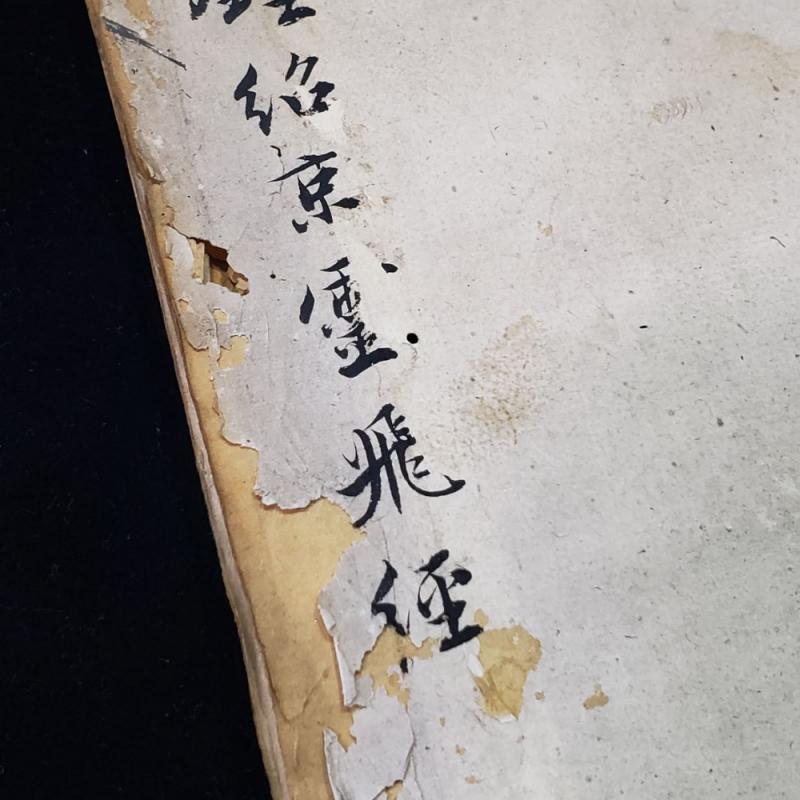 紹京靈飛經